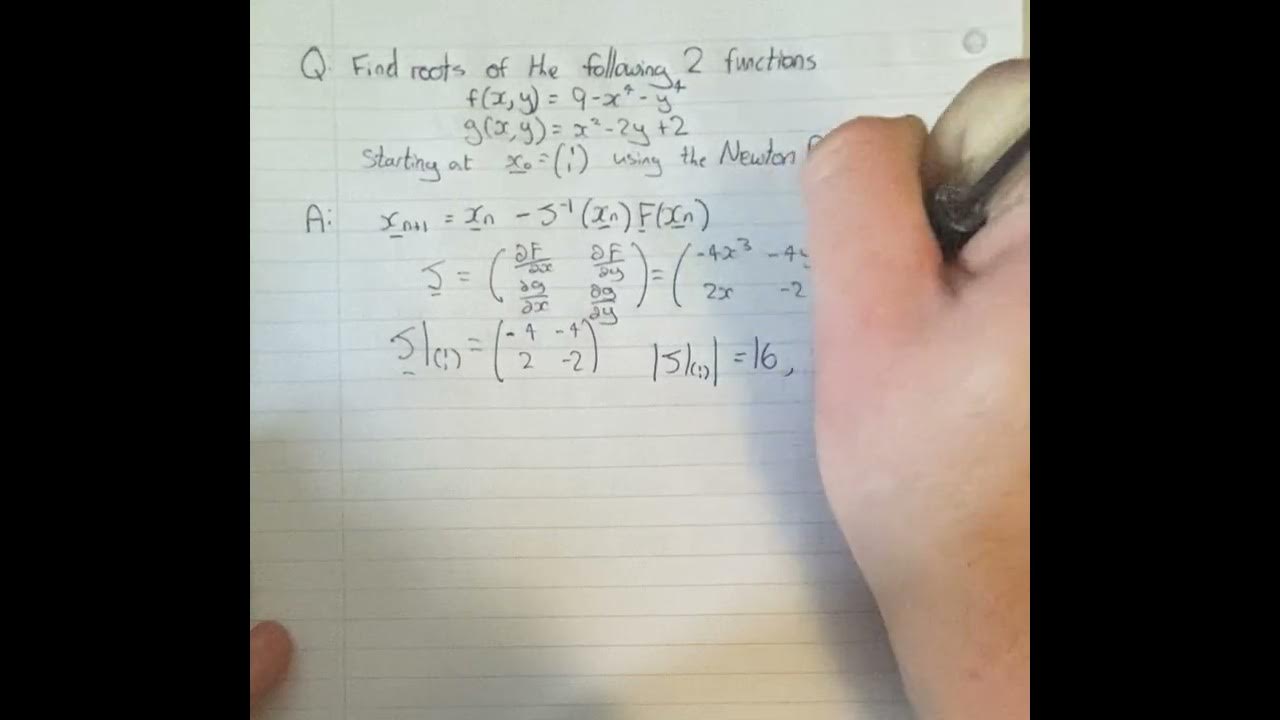 Q. Find roots of the following 2 functions
f(x, y) = 9 - x⁴ - y⁴
g(x, y) = x² - 2y + 2
Starting at x₀ = (1 1) using the Newton
A: xₙ₊₁ = xₙ - J⁻¹(xₙ) F(xₙ)
J = (∂F/∂x ∂F/∂y ∂g/∂x ∂g/∂y) = (-4x³ -4y 2x -2
J|(1 1) = (-4 -4 2 -2) |J|(1 1)| = 16,